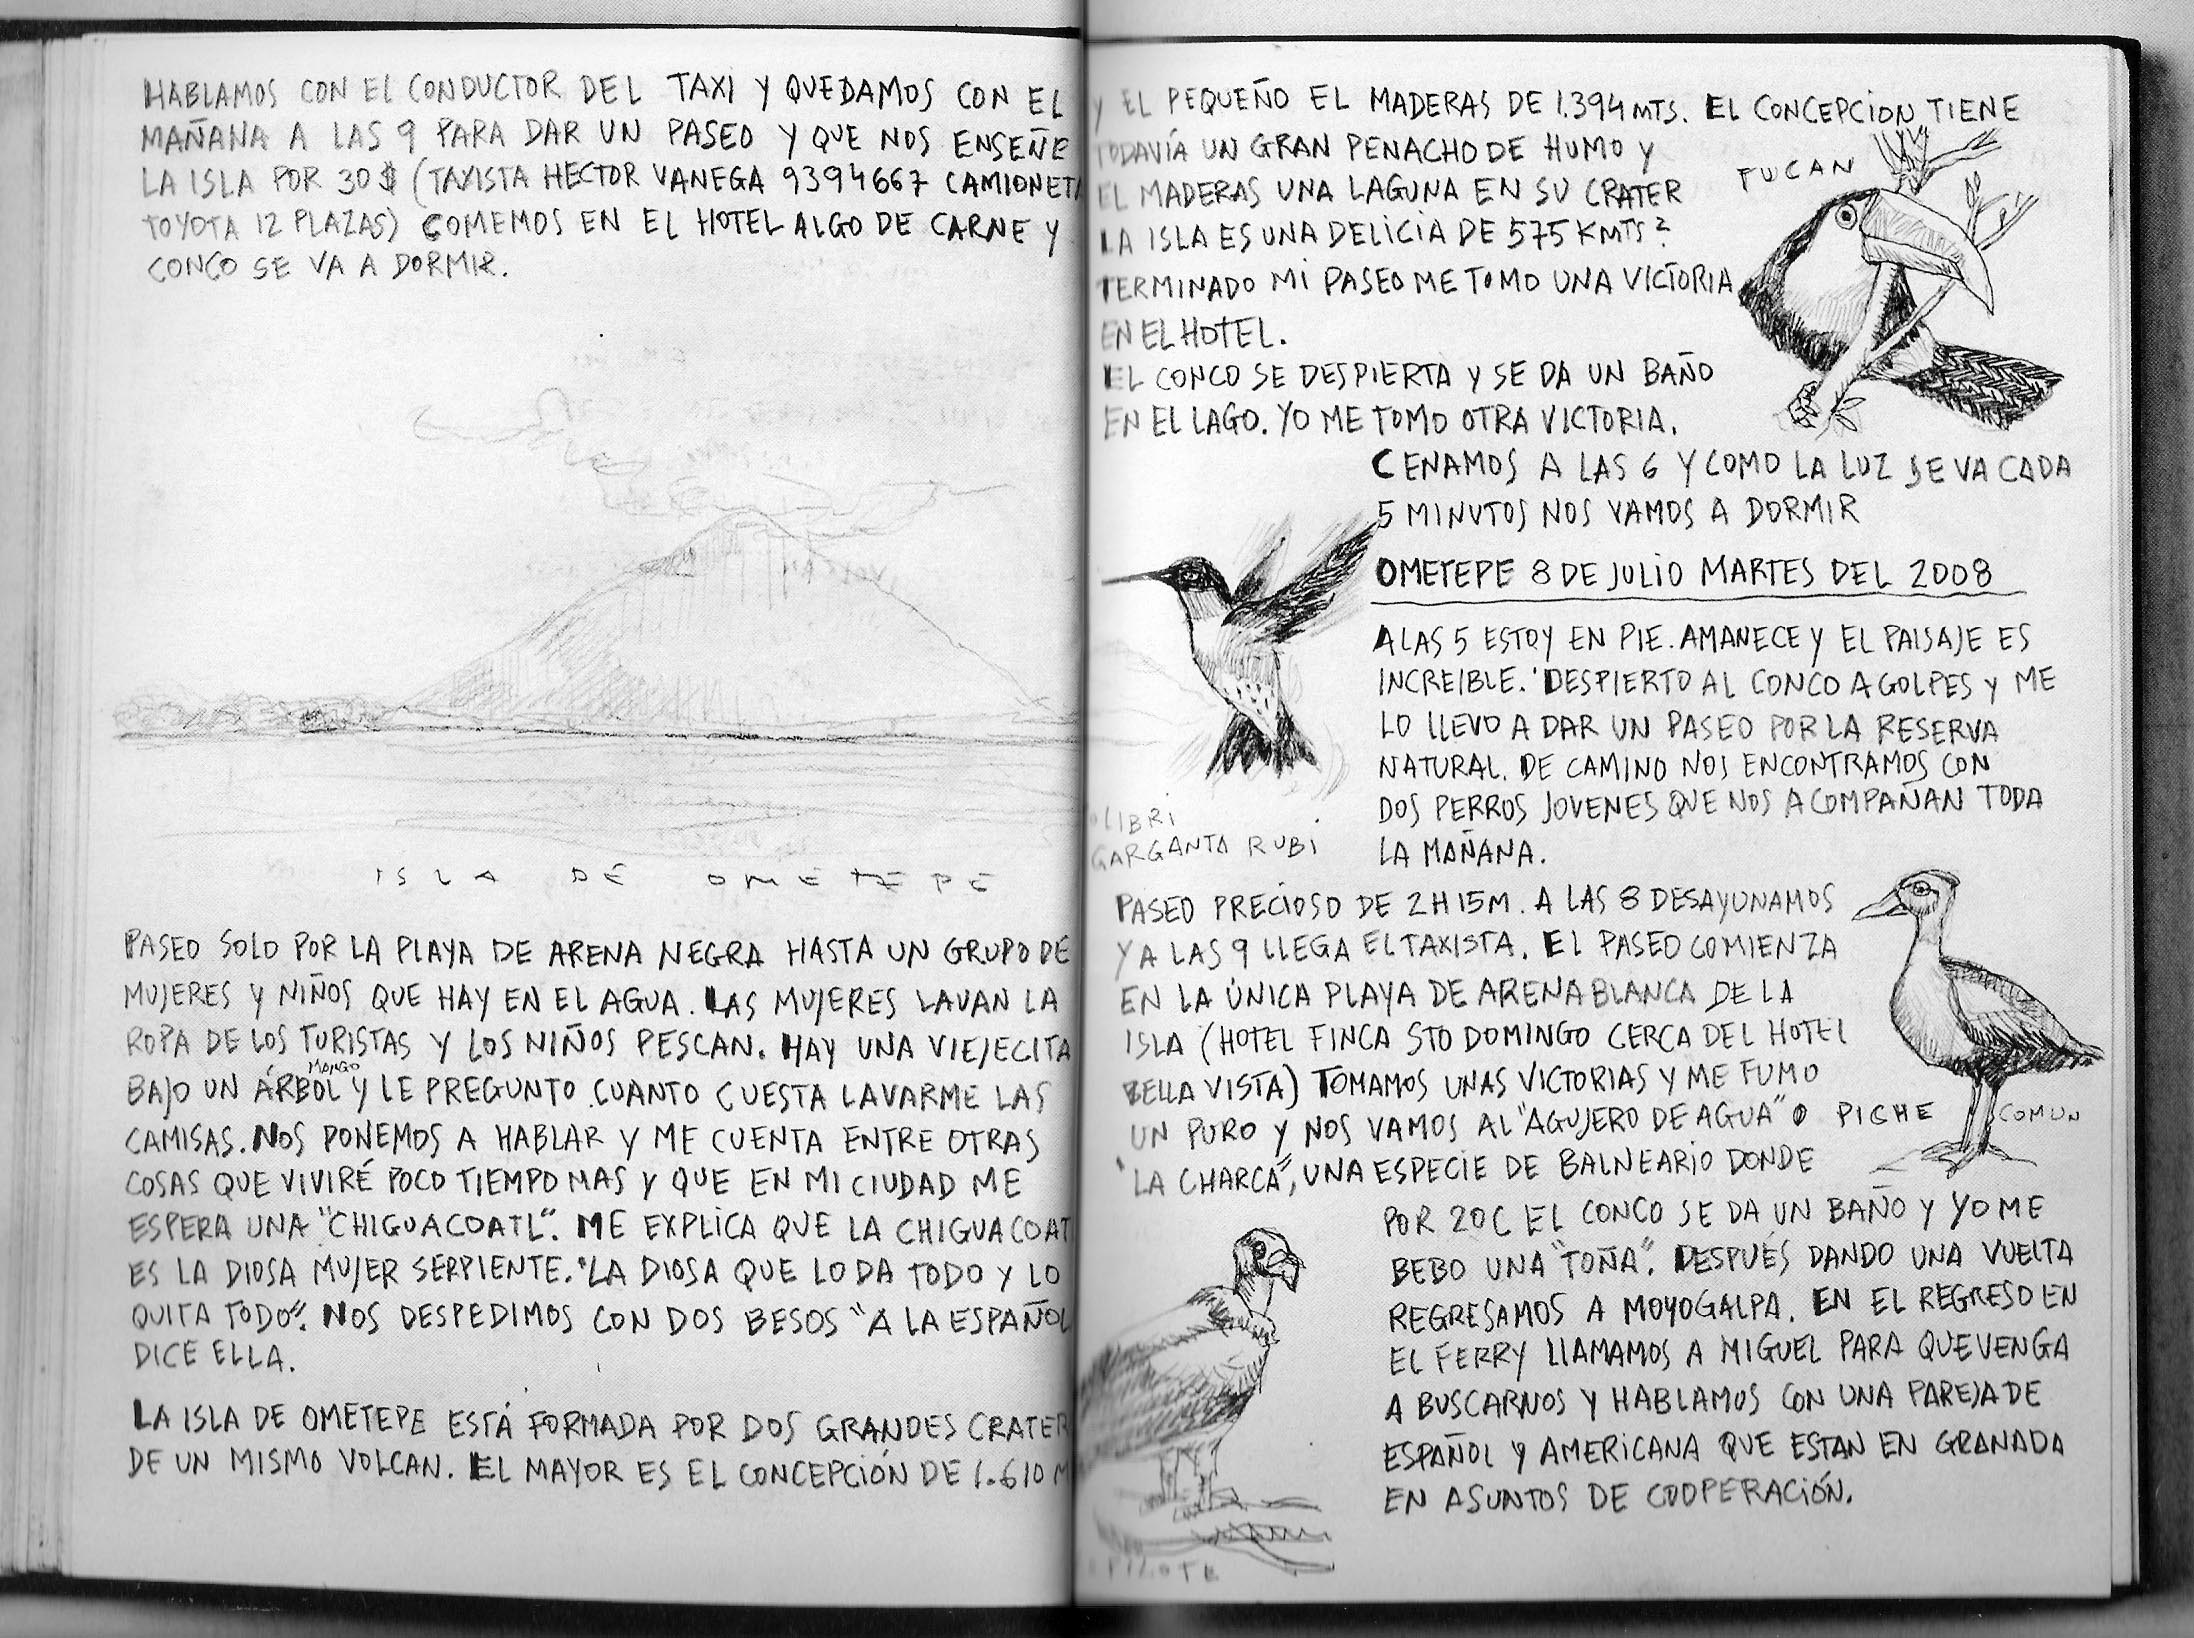 HABLAMOS CON EL CONDUCTOR DEL TAXI Y QUEDAMOS CON EL
MAÑANA A LAS 9 PARA DAR UN PASEO Y QUE NOS ENSEÑE
LA ISLA POR 30 $ (TAXISTA HECTOR VANEGA 9394667 CAMIONETA
TOYOTA 12 PLAZAS) COMEMOS EN EL HOTEL ALGO DE CARNE Y
CONCO SE VA A DORMIR.
ISLA DE OMETEPE
PASEO SOLO POR LA PLAYA DE ARENA NEGRA HASTA UN GRUPO DE
MUJERES Y NIÑOS QUE HAY EN EL AGUA. LAS MUJERES LAVAN LA
ROPA DE LOS TURISTAS Y LOS NIÑOS PESCAN. HAY UNA VIEJECITA
MANGO
BAJO UN ÁRBOL Y LE PREGUNTO CUANTO CUESTA LAVARME LAS
CAMISAS. NOS PONEMOS A HABLAR Y ME CUENTA ENTRE OTRAS
COSAS QUE VIVIRÉ POCO TIEMPO MAS Y QUE EN MI CIUDAD ME
ESPERA UNA "CHIGUACOATL". ME EXPLICA QUE LA CHIGUACOAT
ES LA DIOSA MUJER SERPIENTE. "LA DIOSA QUE LO DA TODO Y LO
QUITA TODO". NOS DESPEDIMOS CON DOS BESOS "A LA ESPAÑOL
DICE ELLA.
LA ISLA DE OMETEPE ESTÁ FORMADA POR DOS GRANDES CRATER
DE UN MISMO VOLCAN. EL MAYOR ES EL CONCEPCIÓN DE 1.610 M
Y EL PEQUEÑO EL MADERAS DE 1.394 MTS. EL CONCEPCION TIENE
TODAVÍA UN GRAN PENACHO DE HUMO Y
EL MADERAS UNA LAGUNA EN SU CRATER
TUCAN
LA ISLA ES UNA DELICIA DE 575 KMTS²
TERMINADO MI PASEO ME TOMO UNA VICTORIA
EN EL HOTEL.
EL CONCO SE DESPIERTA Y SE DA UN BAÑO
EN EL LAGO. YO ME TOMO OTRA VICTORIA.
CENAMOS A LAS 6 Y COMO LA LUZ SE VA CADA
5 MINUTOS NOS VAMOS A DORMIR
OMETEPE 8 DE JULIO MARTES DEL 2008
A LAS 5 ESTOY EN PIE. AMANECE Y EL PAISAJE ES
INCREIBLE. DESPIERTO AL CONCO A GOLPES Y ME
LO LLEVO A DAR UN PASEO POR LA RESERVA
NATURAL. DE CAMINO NOS ENCONTRAMOS CON
DOS PERROS JOVENES QUE NOS ACOMPAÑAN TODA
LA MAÑANA.
OLIBRI
GARGANTA RUBI
PASEO PRECIOSO DE 2H 15M. A LAS 8 DESAYUNAMOS
Y A LAS 9 LLEGA EL TAXISTA. EL PASEO COMIENZA
EN LA ÚNICA PLAYA DE ARENA BLANCA DE LA
ISLA (HOTEL FINCA STO DOMINGO CERCA DEL HOTEL
BELLA VISTA) TOMAMOS UNAS VICTORIAS Y ME FUMO
UN PURO Y NOS VAMOS AL "AGUJERO DE AGUA" O
"LA CHARCA", UNA ESPECIE DE BALNEARIO DONDE
PICHE COMUN
POR 20C EL CONCO SE DA UN BAÑO Y YO ME
BEBO UNA "TOÑA". DESPUÉS DANDO UNA VUELTA
REGRESAMOS A MOYOGALPA. EN EL REGRESO EN
EL FERRY LLAMAMOS A MIGUEL PARA QUE VENGA
A BUSCARNOS Y HABLAMOS CON UNA PAREJA DE
ESPAÑOL Y AMERICANA QUE ESTAN EN GRANADA
EN ASUNTOS DE COOPERACIÓN.
OPILOTE